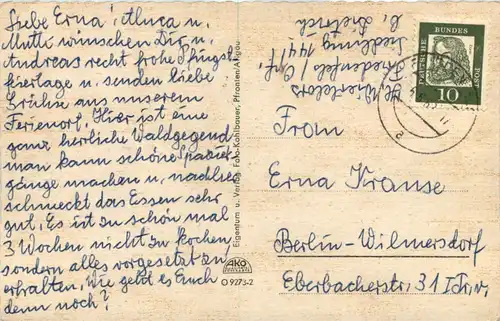 Liebe Erna! Anca u.
Mutti wünschen Dir u.
Andreas recht frohe Pfingst
feiertage u. senden liebe
Grüße aus unserem
Ferienort. Hier ist eine
ganz herrliche Waldgegend
man kann schöne Spazier
gänge machen u. nachher
schmeckt das Essen sehr
gut. Es ist zu schön mal
3 Wochen nicht zu kochen
sondern alles vorgesetzt zu
erhalten. Wie geht es Euch
denn noch?
Eigentum u. Verlag Foto-Kohlbauer, Pfronten/Allgäu
AKO
O 9273-2
Friedenfels / Opf.
Siedlung 144 1/
b. Dietrich
DEUTSCHE BUNDESPOST
10
a
Frau
Erna Krause
Berlin-Wilmersdorf
Eberbacherstr. 31 I Tr. r.